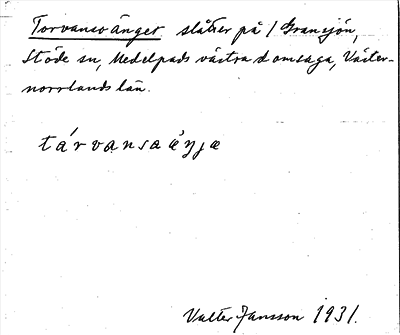 Torvansoänget slåtter på / Gransjön,
Stöde sn, Medelpads västra domsaga, Väster-
norrlands län.
tárvansaäŋja
Valter Jansson 1931.